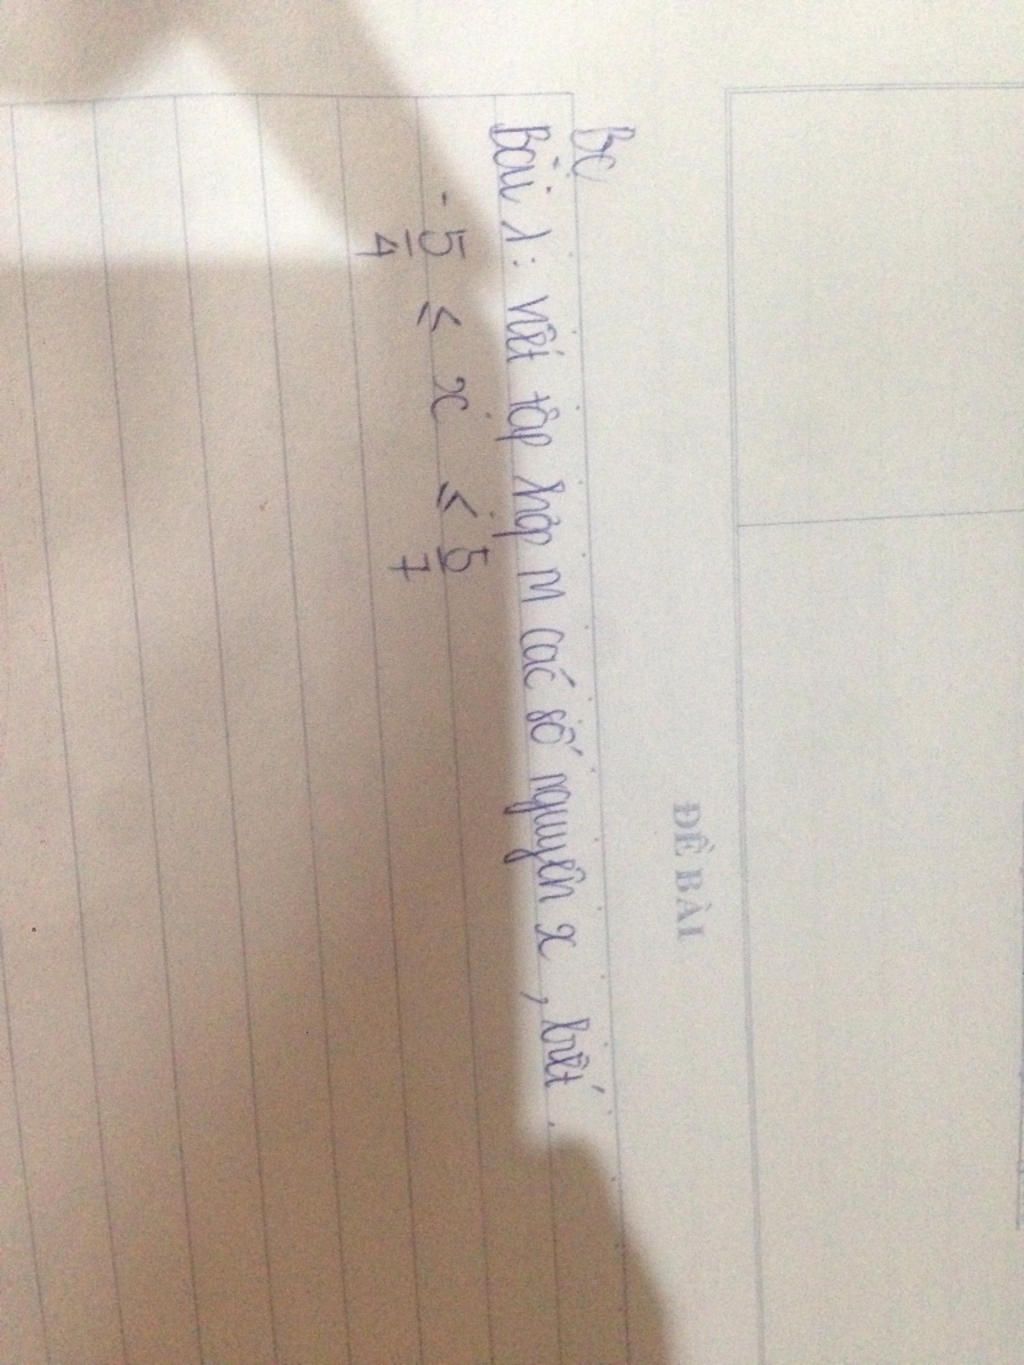 ĐỀ BÀI
Bà
Bài 1: Viết tập hợp M các số nguyên x, biết
-5/4 ≤ x ≤ 5/7